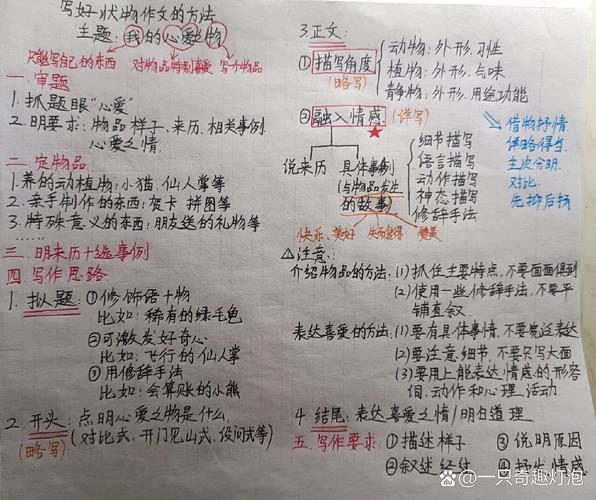 写好状物作文的方法
主题:我的心爱之物
只能写自己的东西 对物品特别喜爱 写个物品
一. 审题
1. 抓题眼"心爱"
2. 明要求:物品样子、来历、相关事例
心爱之情.
二. 定物品
1. 养的动植物:小猫、仙人掌等
2. 亲手制作的东西:贺卡 拼图等
3. 特殊意义的东西:朋友送的礼物等
……
三. 明来历+选事例
四. 写作思路
1. 拟题:①修饰语+物
比如:稀有的绿毛龟
②可激发好奇心
比如:飞行的仙人掌
③用修辞手法
比如:会算账的小熊
2. 开头:点明心爱之物是什么.
(略写) (对比式、开门见山式、设问式等)
3. 正文:
①描写角度
(略写)
动物:外形.习性
植物:外形.气味
静物:外形.用途功能
②融入情感 (详写)
说来历 具体事例
(与物品发生
的故事)
细节描写
语言描写
动作描写
神态描写
修辞手法
快乐、美好 失而复得 赞美
借物抒情.
详略得当
主次分明.
对比.
先抑后扬
△注意:
介绍物品的方法:(1)抓住主要特点,不要面面俱到
(2)使用一些修辞手法.不要平
铺直叙.
表达喜爱的方法:(1)要有具体事情,不要笼统表达
(2)要注意细节,不要只写大面
(3)要用上能表达情感的形容
词、动作和心理活动.
4. 结尾:表达喜爱之情/明白道理
五. 写作要求:①描述样子 ③说明原因
②叙述经过 ④抒发情感
@一只奇趣灯泡